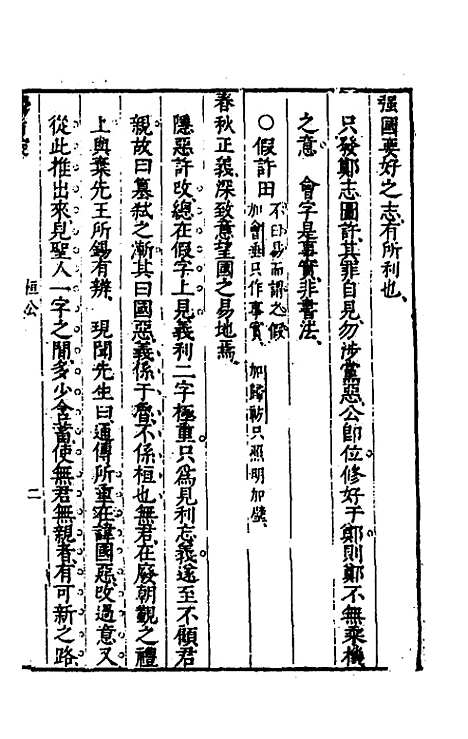 强國要好之志有所利也
只發鄭志圖許其罪自見勿涉黨惡公卽位修好于鄭則鄭不無乘機
之意 會字是事實非書法
○假許田 不曰易而謂之假 加會垂只作事實 加歸祊只照明加璧
春秋正義深致意望國之易地焉
隱惡許改總在假字上見義利二字極重只爲見利忘義遂至不顧君
親故曰簒弑之漸其曰國惡義係于魯不係桓也無君在廢朝覲之禮
上與棄先王所錫有辨 現聞先生曰通傳所重在諱國惡改過意又
從此推出來見聖人一字之間多少含蓄使無君無親者有可新之路
桓公
二